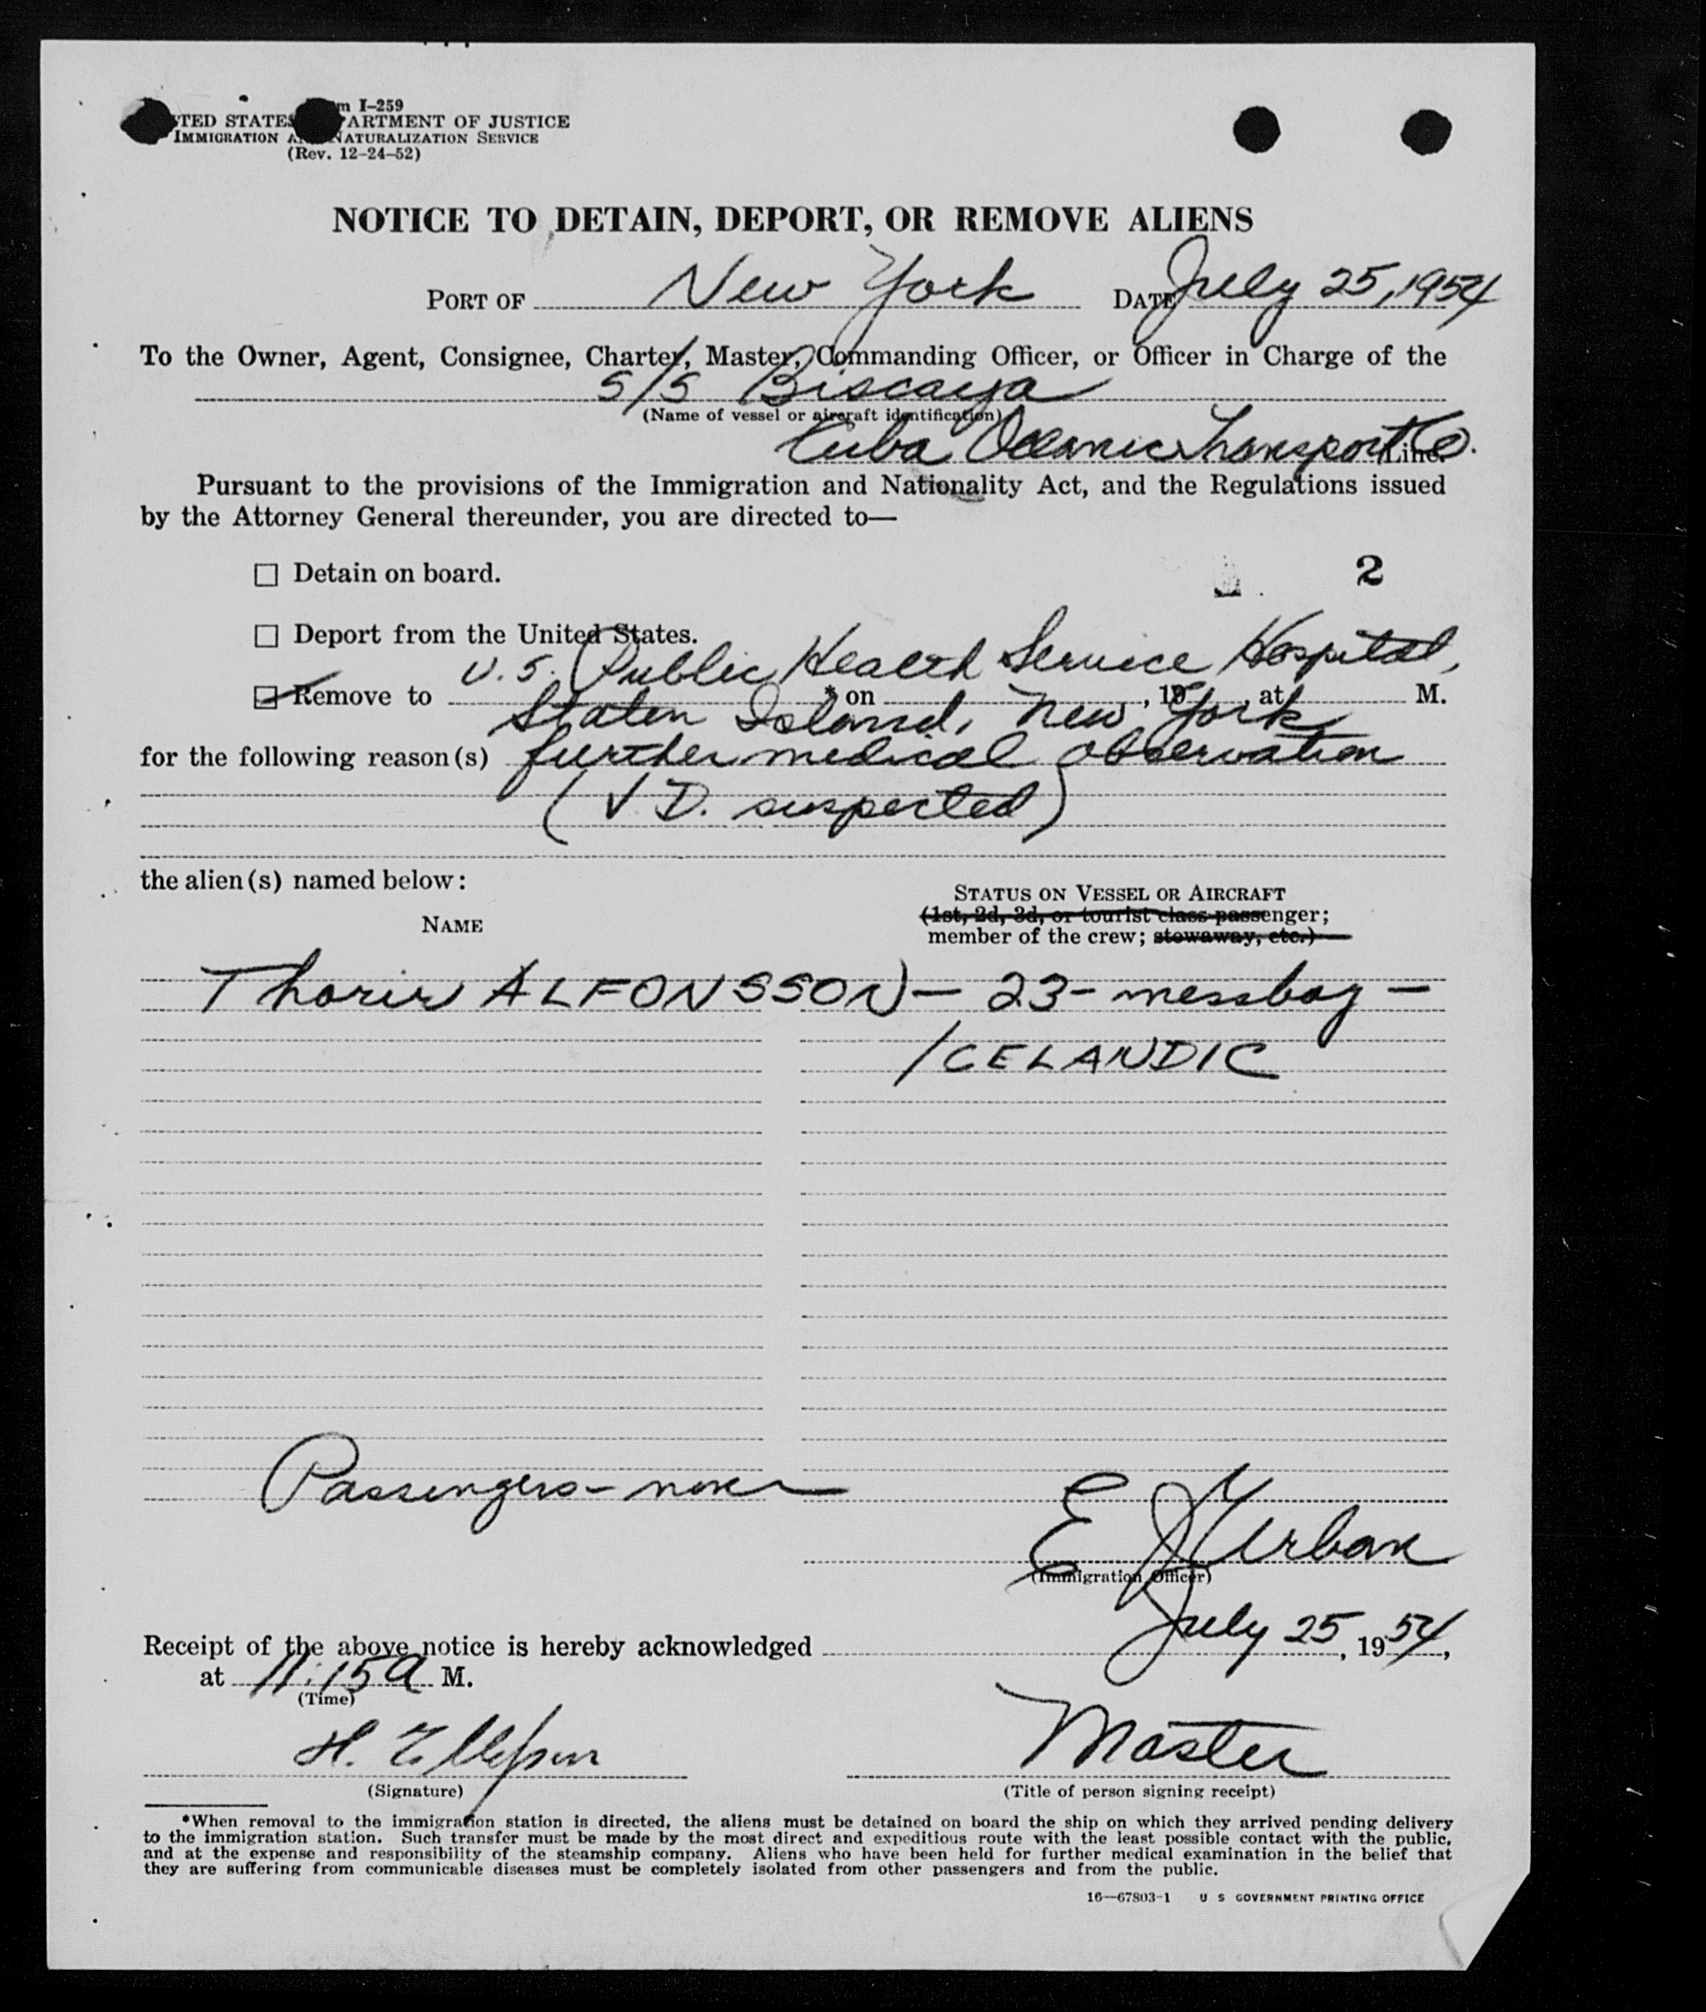 m I-259
TED STATES ARTMENT OF JUSTICE
IMMIGRATION A NATURALIZATION SERVICE
(Rev. 12-24-52)
NOTICE TO DETAIN, DEPORT, OR REMOVE ALIENS
PORT OF New York DATE July 25, 1954
To the Owner, Agent, Consignee, Charter, Master, Commanding Officer, or Officer in Charge of the
S/S Biscaya
(Name of vessel or aircraft identification)
Cuba Oceanic Transport Co. Line.
Pursuant to the provisions of the Immigration and Nationality Act, and the Regulations issued
by the Attorney General thereunder, you are directed to—
☐ Detain on board. 2
☐ Deport from the United States.
U.S. Public Health Service Hospital,
☑ Remove to * on , 19 , at M.
Staten Island, New York
for the following reason(s) further medical observation
(V.D. suspected)
the alien(s) named below:
STATUS ON VESSEL OR AIRCRAFT
NAME (1st, 2d, 3d, or tourist class passenger;
member of the crew; stowaway, etc.)
Thorir ALFONSSON — 23 - messboy —
ICELANDIC
Passengers - none
E J Urban
(Immigration Officer)
Receipt of the above notice is hereby acknowledged July 25, 1954,
at 11:15 A M.
(Time)
H. Master
(Signature) (Title of person signing receipt)
*When removal to the immigration station is directed, the aliens must be detained on board the ship on which they arrived pending delivery
to the immigration station. Such transfer must be made by the most direct and expeditious route with the least possible contact with the public,
and at the expense and responsibility of the steamship company. Aliens who have been held for further medical examination in the belief that
they are suffering from communicable diseases must be completely isolated from other passengers and from the public.
16—67803-1 U S GOVERNMENT PRINTING OFFICE